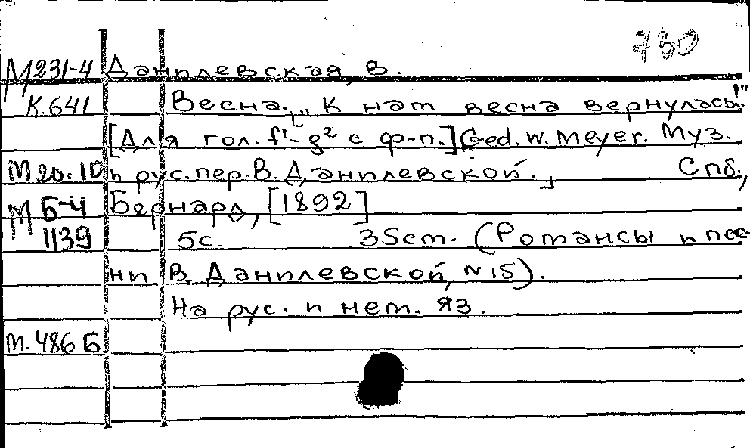 730
М231-4 Данилевская, В.
К.641 Весна. „К нам весна вернулась"
[Для гол. f¹-g² с ф-п.] Ged. W. Meyer. Муз.
М 20.10 и рус. пер. В. Данилевской. Спб.,
М Б-4 Бернард, [1892]
1139 5с. 35cm. (Романсы и пес-
ни В. Данилевской, N 15).
На рус. и нем. яз.
М.486 Б